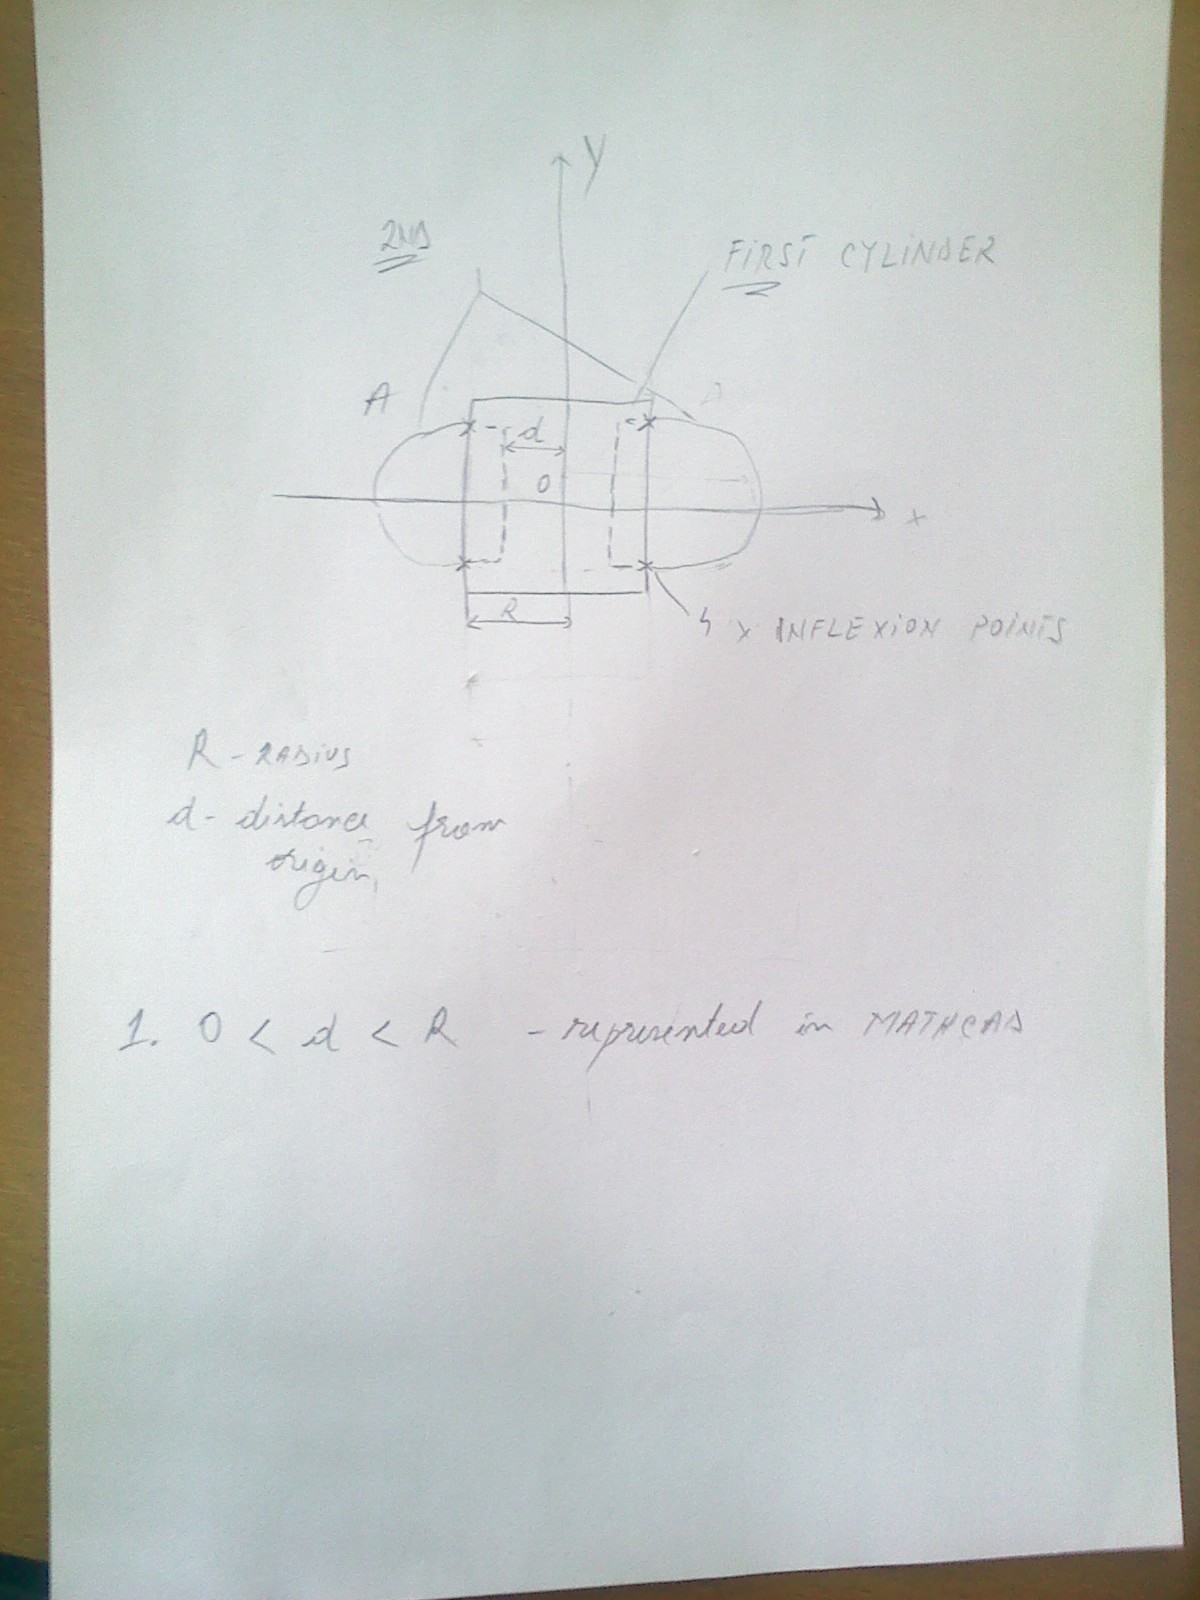 y
2ND
FIRST CYLINDER
A
d
O
x
R
4 x INFLEXION POINTS
R - RADIUS
d - distance from
origin,
1. 0 < d < R - represented in MATHCAD